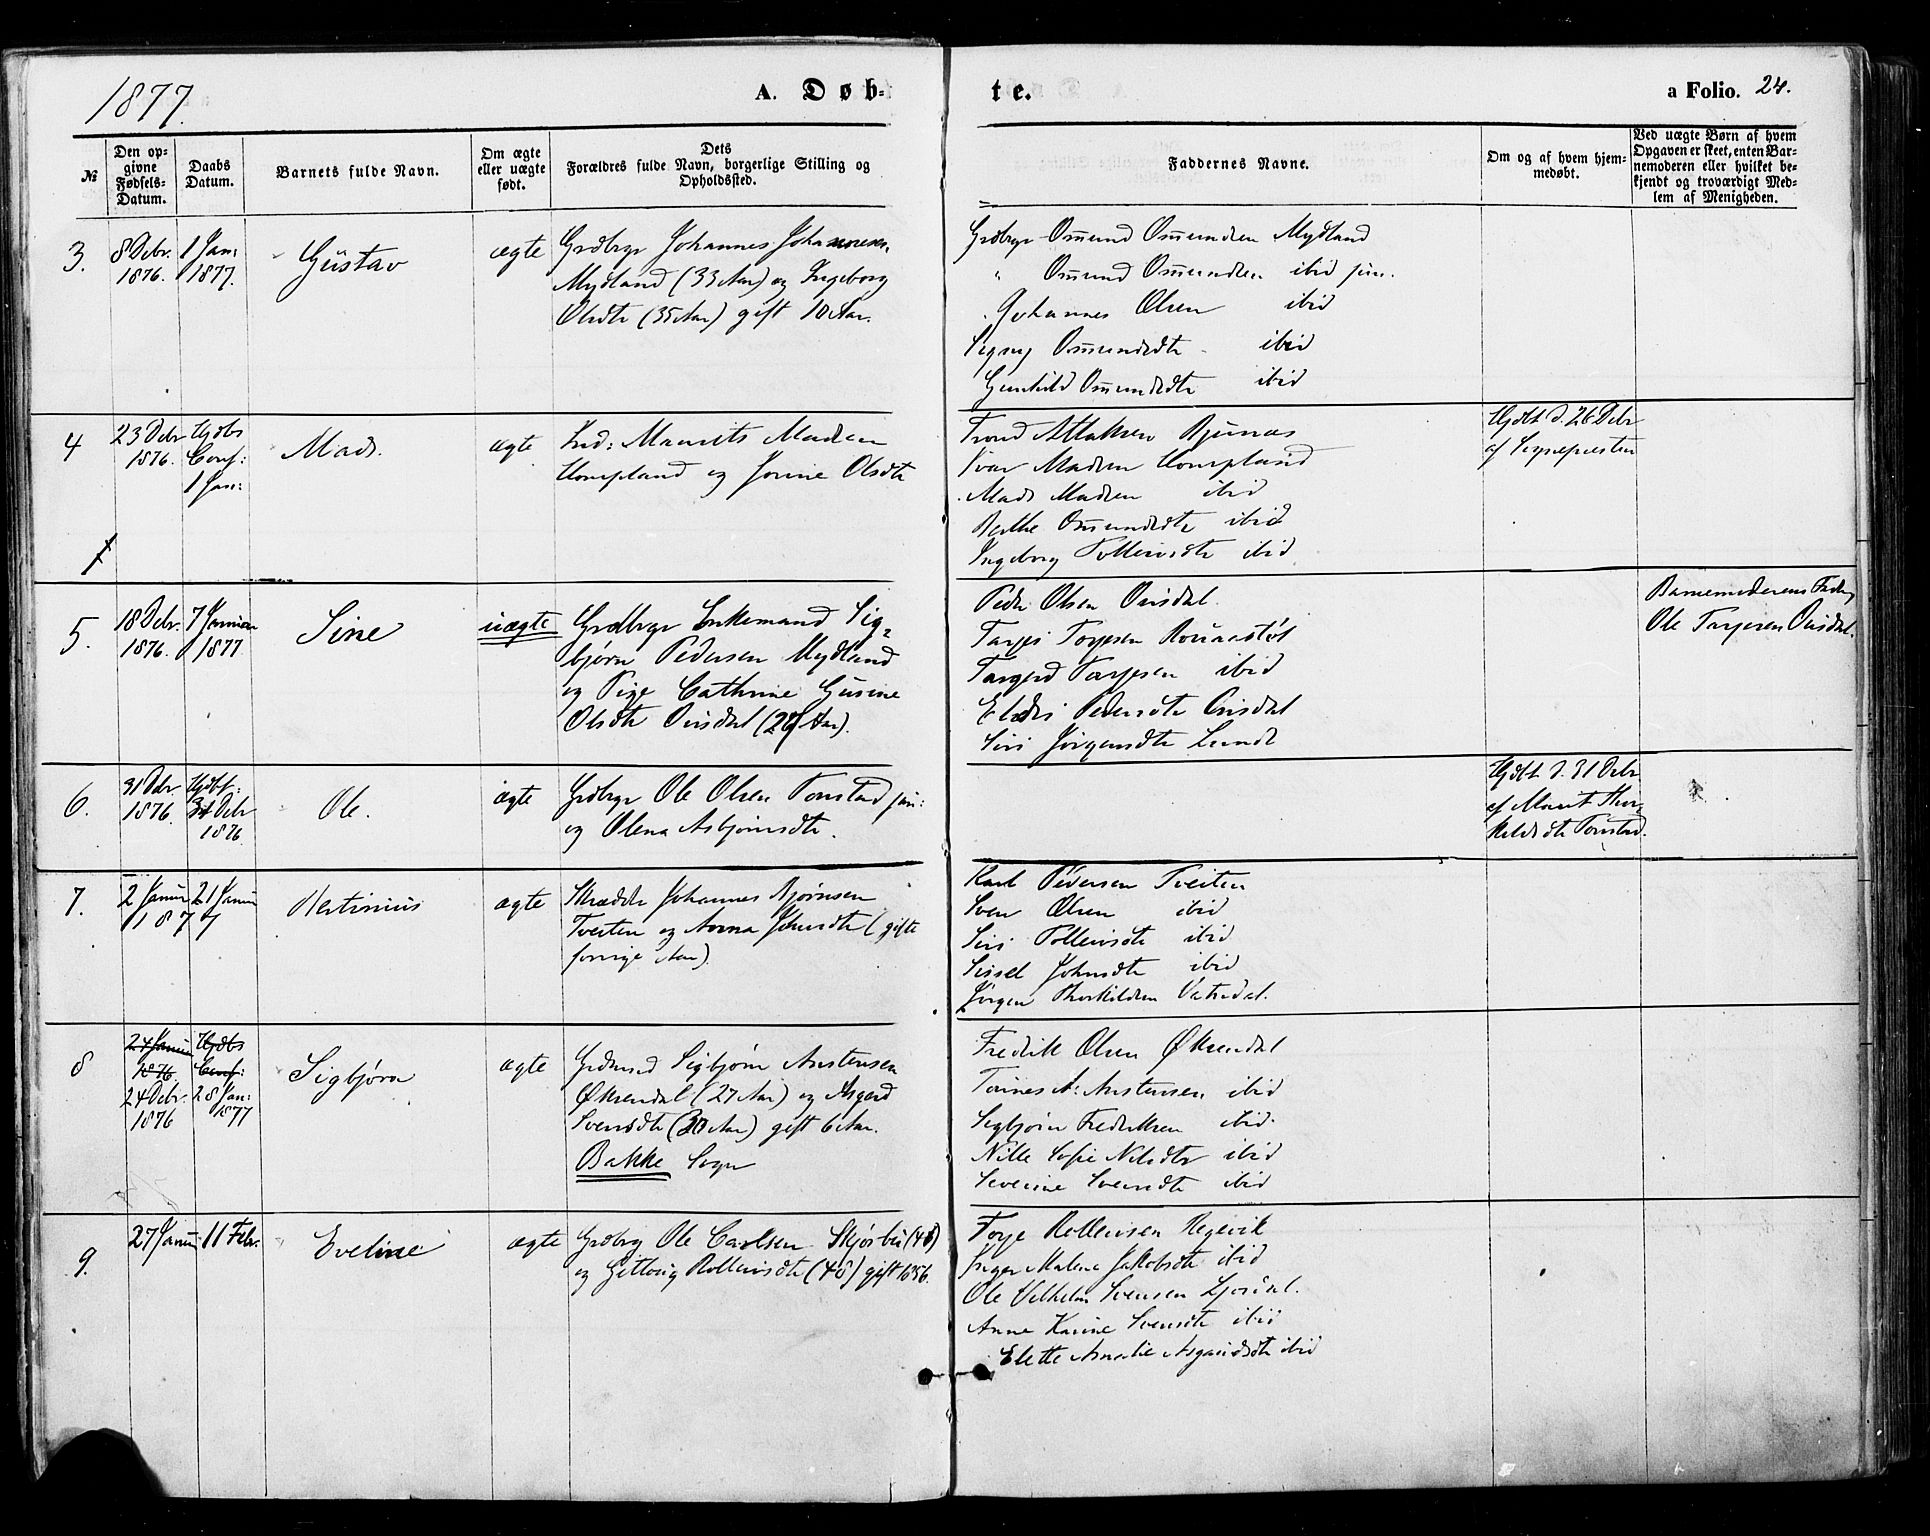 1877.
A. Døb-
te.
a Folio. 24.
№
Den op-
givne
Fødsels-
Datum.
Daabs
Datum.
Barnets fulde Navn.
Om ægte
eller uægte
født.
Dets
Forældres fulde Navn, borgerlige Stilling og
Opholdssted.
Faddernes Navne.
Om og af hvem hjem-
medøbt.
Ved uægte Børn af hvem
Opgaven er skeet, enten Bar-
nemoderen eller hvilket be-
kjendt og troværdigt Med-
lem af Menigheden.
3.
8 Debr.
1876.
1 Jan:
1877.
Gustav
ægte
Grdbrgr Johannes Johannesen
Mydland (33 Aar) og Ingeborg
Olsdtr (35 Aar) gift 10 Aar.
Grdbrgr Omund Omundsen Mydland
" Omund Omundsen ibid jun.
Johannes Olsen ibid
Signy Omundsdtr ibid
Gunhild Omundsdtr ibid
4
23 Debr
1876.
Hjdbs
Conf:
1 Jan:
Mads.
ægte
Ind: Maurits Madsen
Hompland og Jorine Olsdtr
Trond Atlaksen Bjunes
Ivar Madsen Hompland
Mads Madsen ibid
Berthe Omundsdtr ibid
Ingeborg Tollevsdtr ibid
Hjdbt d. 26 Debr
af Sognepresten
5.
18 Debr.
1876.
7 Januar
1877
Sine
uægte
Grdbrgr Enkemand Sig-
bjørn Pedersen Mydland
og Pige Cathrine Gusine
Olsdtr Ousdal (27 Aar).
Peder Olsen Ousdal.
Tarjei Torjesen
Targerd Tarjesen ibid
Elddis Pedersdtr Ousdal
Siri Jørgensdtr Lunde
Barnemoderens Fader,
Ole Tarjesen Ousdal.
6.
31 Debr
1876.
Hjdbf:
31 Debr
1876.
Ole.
ægte
Grdbrgr Ole Olsen Tonstad jun:
og Olena Asbjørnsdtr.
Hjdbt d. 31 Debr
af Marit Thor-
kildsdtr Tonstad.
7.
2 Januar
1877
21 Januar
Bertinius
ægte
Skrædder Johannes Bjørnsen
Tveiten og Anna Johnsdtr (gifte
forrige Aar)
Karl Pedersen Tveiten
Sven Olsen ibid
Siri Tollevsdtr ibid
Sissel Johnsdtr ibid
Jørgen Thorkildsen Vatnedal.
8
24 Januar
1876
24 Debr.
1876
Hjdbs
Conf:
28 Jan:
1877
Sigbjørn
ægte
Grdmand Sigbjørn Anstensen
Øksendal (27 Aar) og Asgerd
Svensdtr (30 Aar) gift 6 Aar.
Bakke Sogn
Fredrik Olsen Øksendal
Tønnes A: Anstensen ibid
Sigbjørn Fredriksen ibid.
Nille Sofie Nilsdtr ibid
Severine Svensdtr ibid
9.
27 Januar
11 Febr.
Eveline
ægte
Grdbrg Ole Carlsen Skjørbu (48)
og Gitlaug Rollevsdtr (48) gift 1856.
Torje Rollevsen Regevik
Inger Malene Jakobsdtr ibid
Ole Vilhelm Svensen Ljosdal.
Anne Karine Svensdtr ibid
Elette Amalie Asgautsdtr ibid